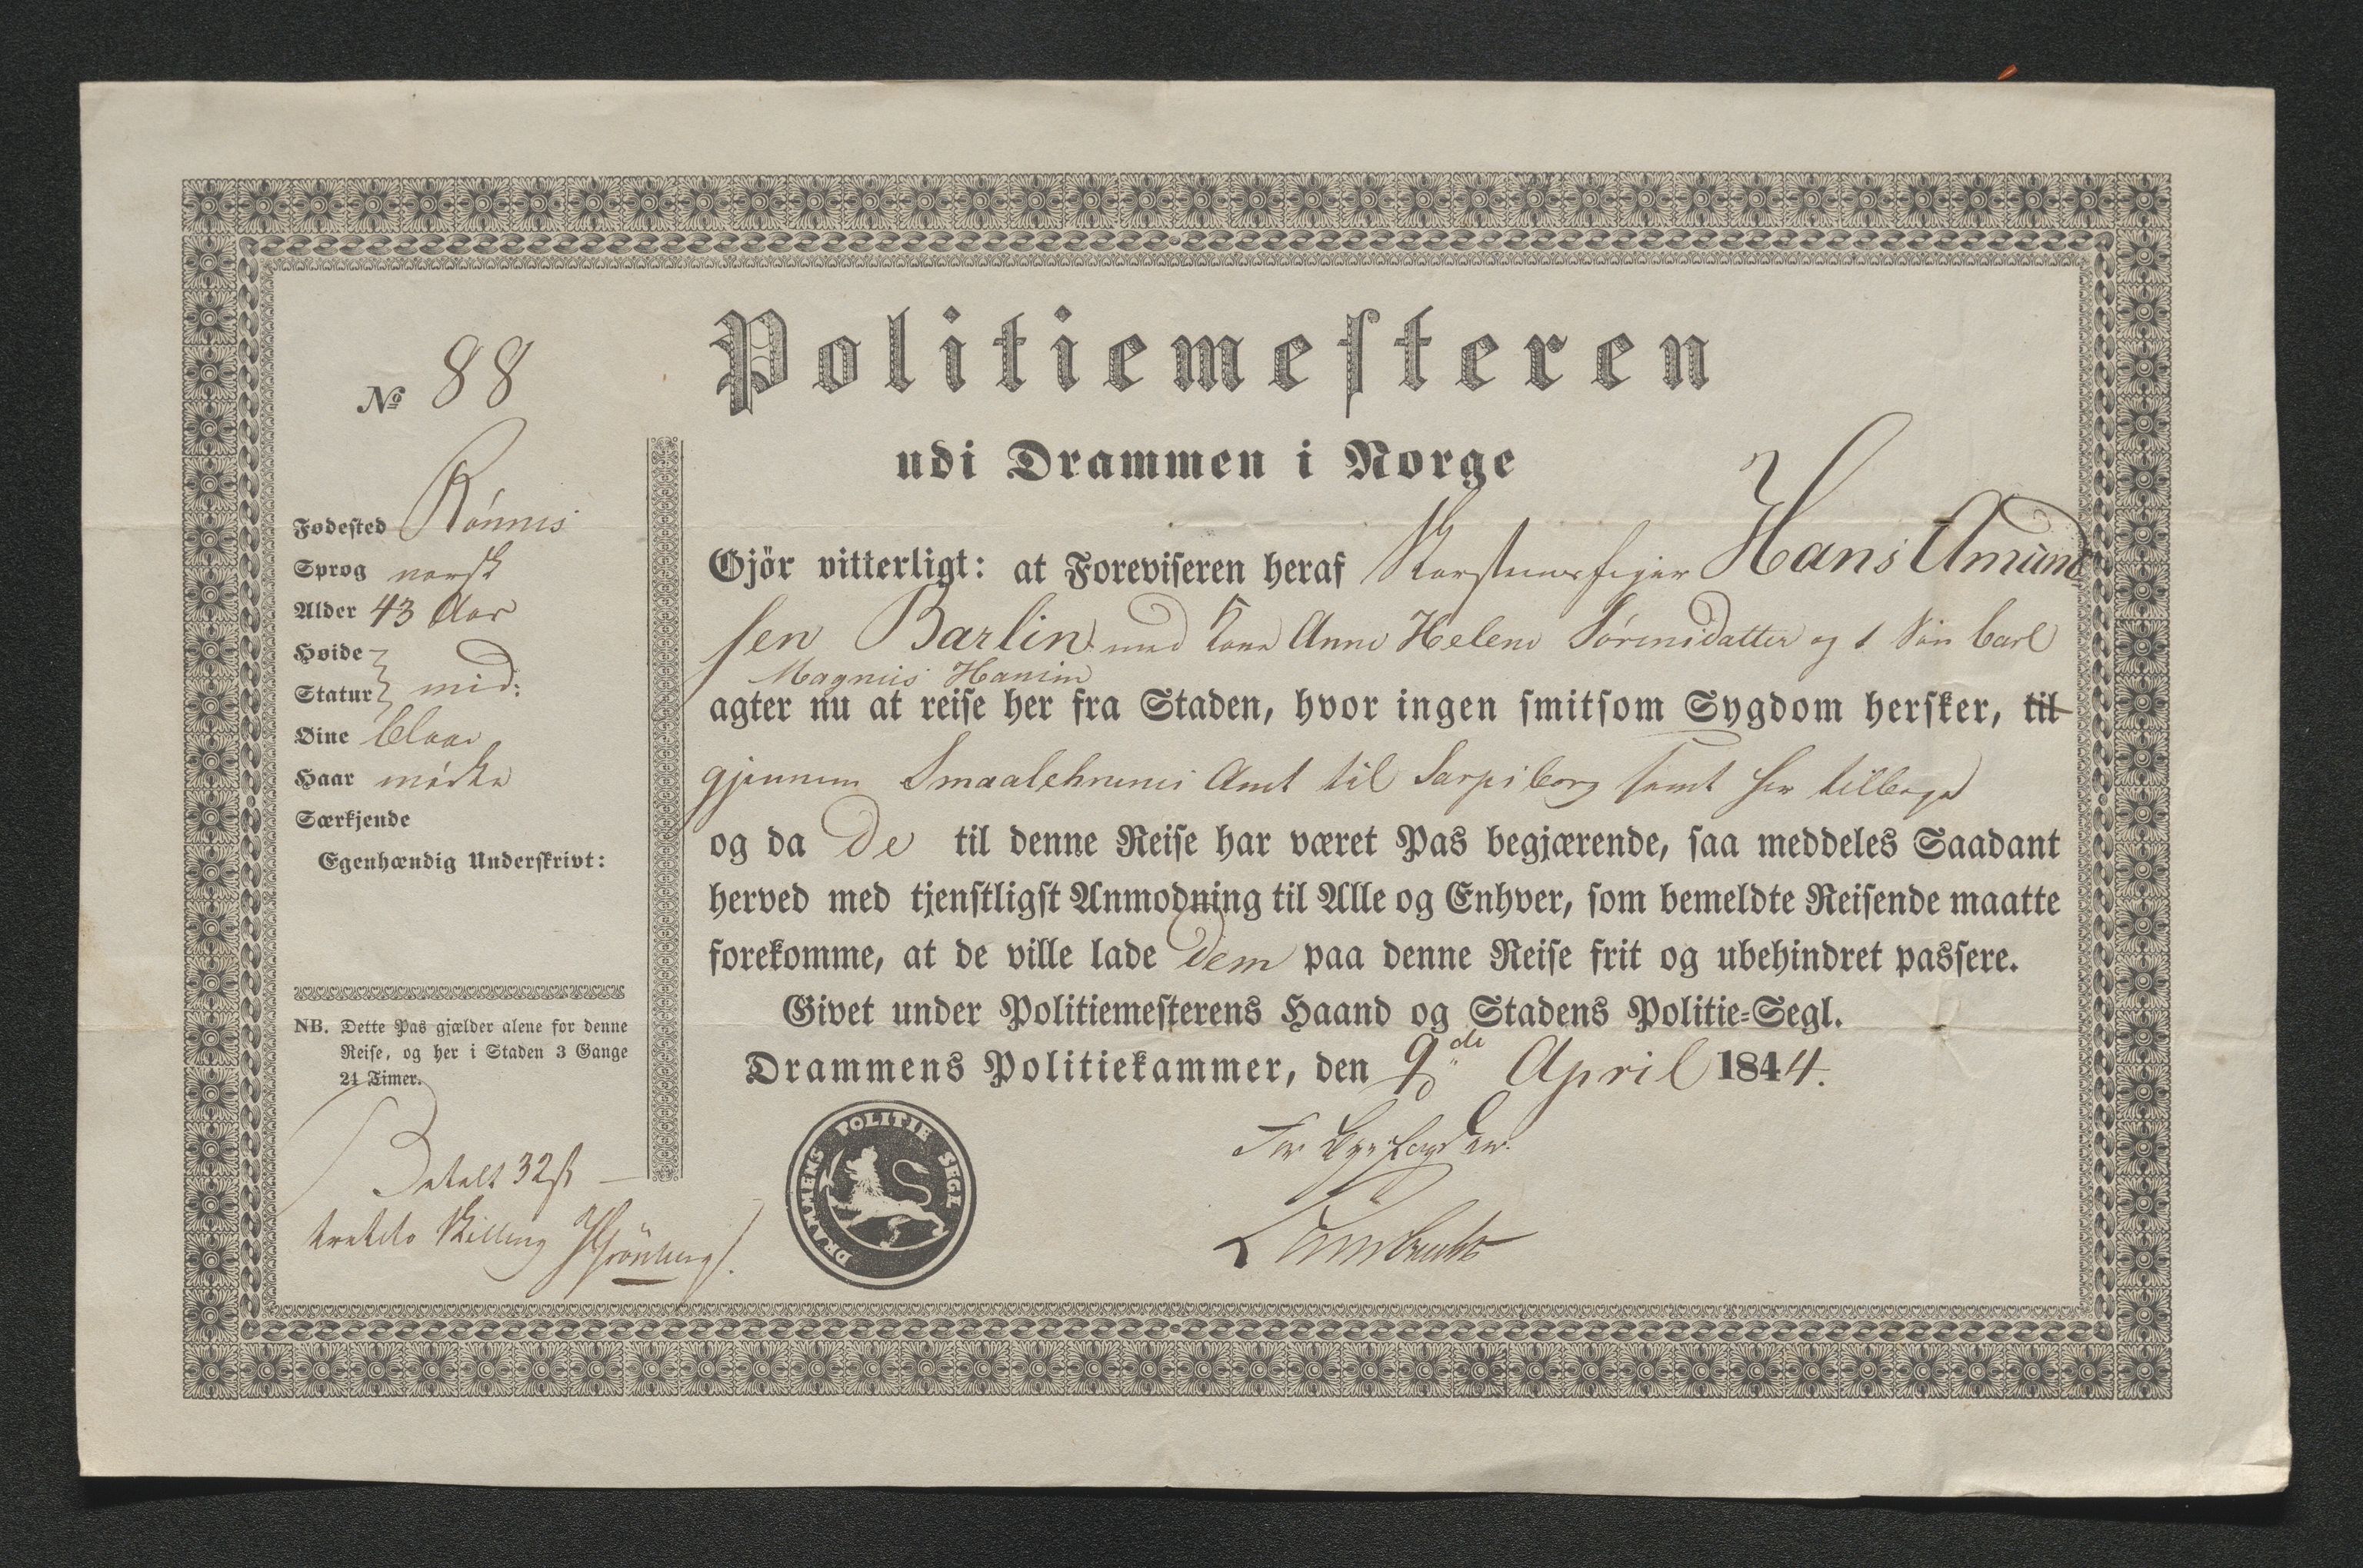 № 88
Fødested Rønnes
Sprog norsk
Alder 43 Aar
Høide
Statur } mid:
Øine blaae
Haar mørke
Særkjende
Egenhændig Underskrivt:
NB. Dette Pas gjælder alene for denne
Reise, og her i Staden 3 Gange
24 Timer.
Betalt 32 ß
tretito Skilling
Politiemesteren
udi Drammen i Norge
Gjör vitterligt: at Foreviseren heraf Skorsteensfejer Hans Amund
sen Barlin med Kone Anne Helene Sørensdatter og 1 Søn Carl
Magnus Hansen
agter nu at reise her fra Staden, hvor ingen smitsom Sygdom hersker, til
gjennem Smaalehnenes Amt til Sarpsborg samt her tilbage
og da De til denne Reise har været Pas begjærende, saa meddeles Saadant
herved med tjenstligst Anmodning til Alle og Enhver, som bemeldte Reisende maatte
forekomme, at de ville lade Dem paa denne Reise frit og ubehindret passere.
Givet under Politiemesterens Haand og Stadens Politie-Segl.
Drammens Politiekammer, den 9de April 1844.
DRAMMENS POLITIE SEGL
For Byefogden